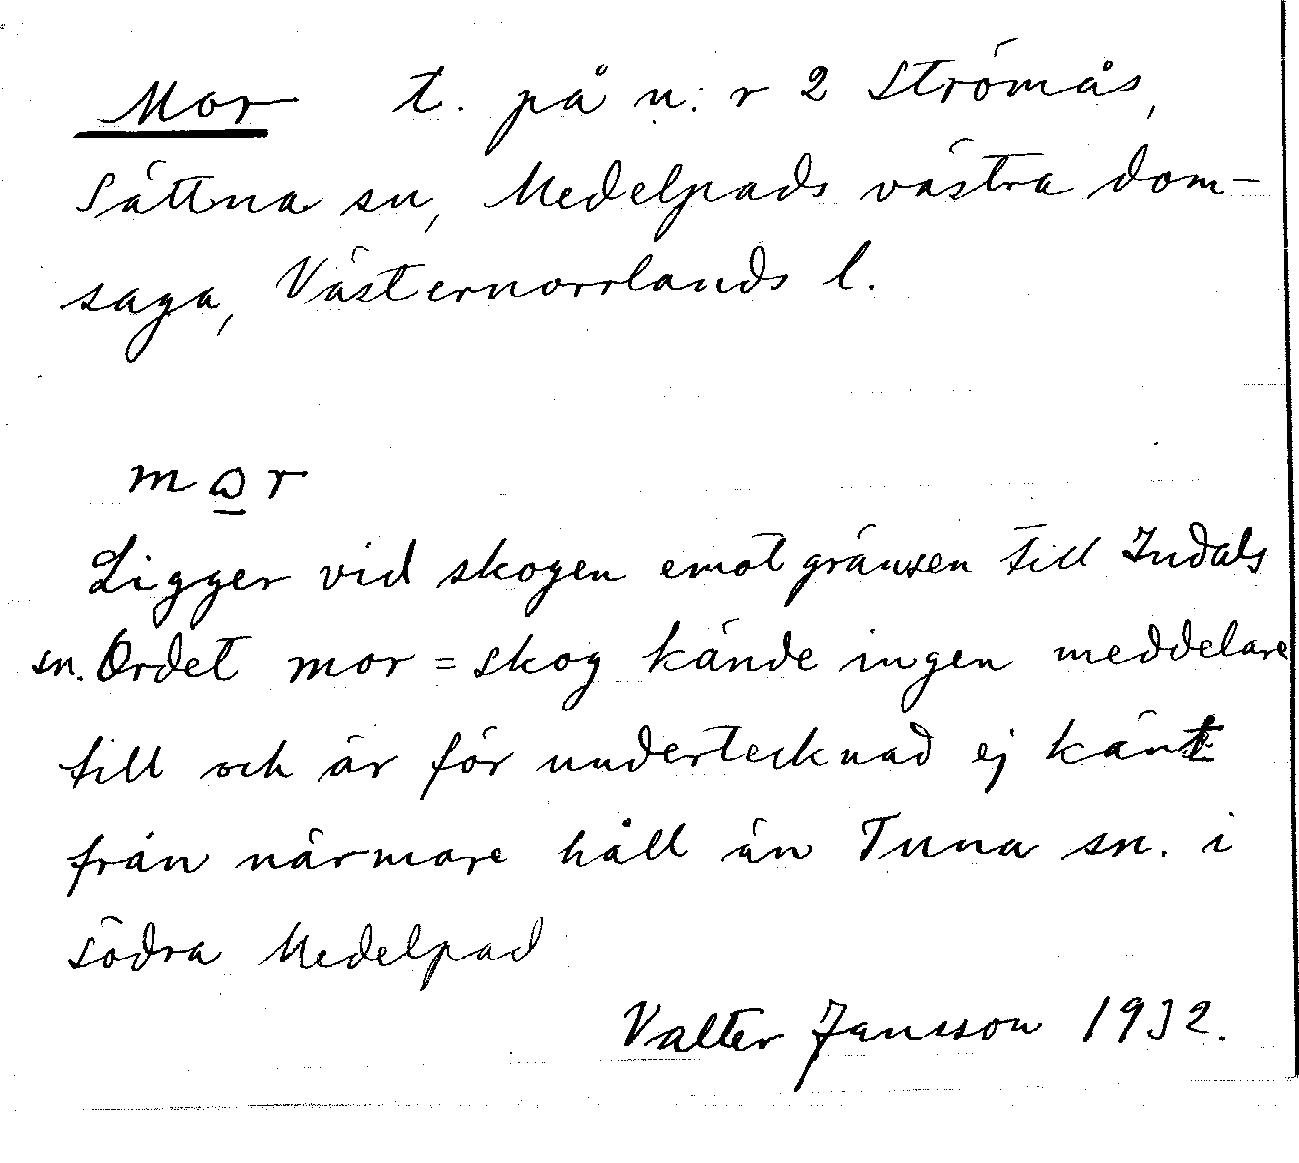 Mor t. på n:r 2 Strömås,
Sättna sn, Medelpads västra dom-
saga, Västernorrlands l.
mɷ̲r
Ligger vid skogen emot gränsen till Indals
sn. Ordet mor = skog kände ingen meddelare
till och är för undertecknad ej känt
från närmare håll än Tuna sn. i
södra Medelpad
Valter Jansson 1932.